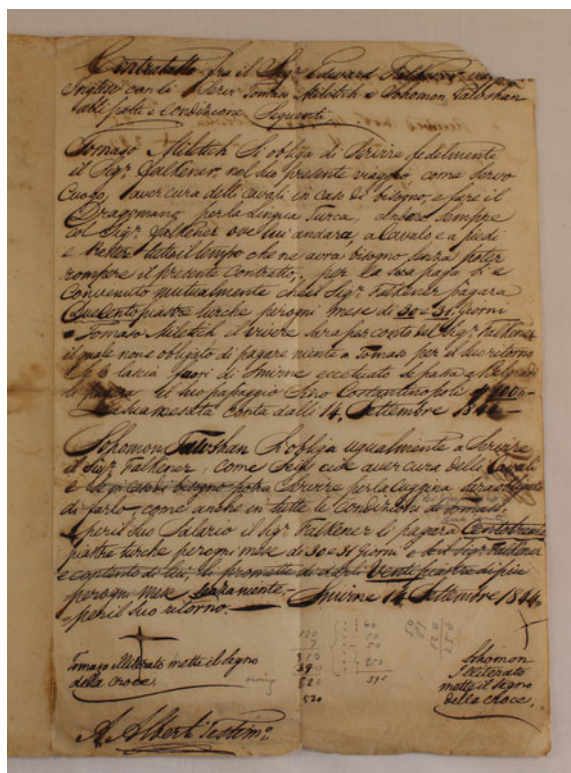 Contratto fra il Sigr Edward Falkener viag
Inglese con li Tomaso Miletich e Solomon Taloshan
alli patti e Condizione Seguenti.
Tomaso Miletich Si obliga di Servire fedelmente
il Sigr. Falkener, nel suo presente viaggio come Servo
Cuogo, aver cura delli cavali in caso di bisogno, e fare il
Dragomano per la Lingua Turca, sempre
col Sigr. Falkener ove lui andara, a Cavalo e a piedi
e Restar tutto il tempo che ne avra bisogno senza poter
rompere il presente Contratto, per la sua paga Si è
Convenuto mutualmente che il Sigr. Falkener pagara
piastre turche per ogni mese di 30 e 31 Giorni
a Tomaso Miletich il vivere sara per conto del Sigr. Falkener
il quale non è obligato di pagare niente a Tomaso per il suo ritorno
Se lo lascia fuori di Smirne eccetuato se passa a Belgrad
li paghera il suo passaggio Sino Costantinopoli
La sua mesata conta dalli 14, Settembre 1844
Solomon Taloshan Si obliga ugualmente a Servire
il Sigr. Falkener, come aver cura delli Cavali
e se in caso di bisogno potra Servire per la Cuggina sara obligato
di farlo, come anche in tutte le Condizioni di Tomaso.
per il Suo Salario il Sigr Falkener li pagara Centotrenta
piastre turche per ogni mese di 30 e 31 Giorni e se il Sigr Falkener
è contento di lui, li promette di darli Venti piastre di più
per ogni mese Smirne 14 Settembre 1844
per il Suo ritorno.
130
7
910
390
520
520
40
50
50
250
390
Tomaso illiterato mette il Segno
della croce.
Solomon
Illiterato
mette il Segno
della Croce.
A. Alberti Testimo